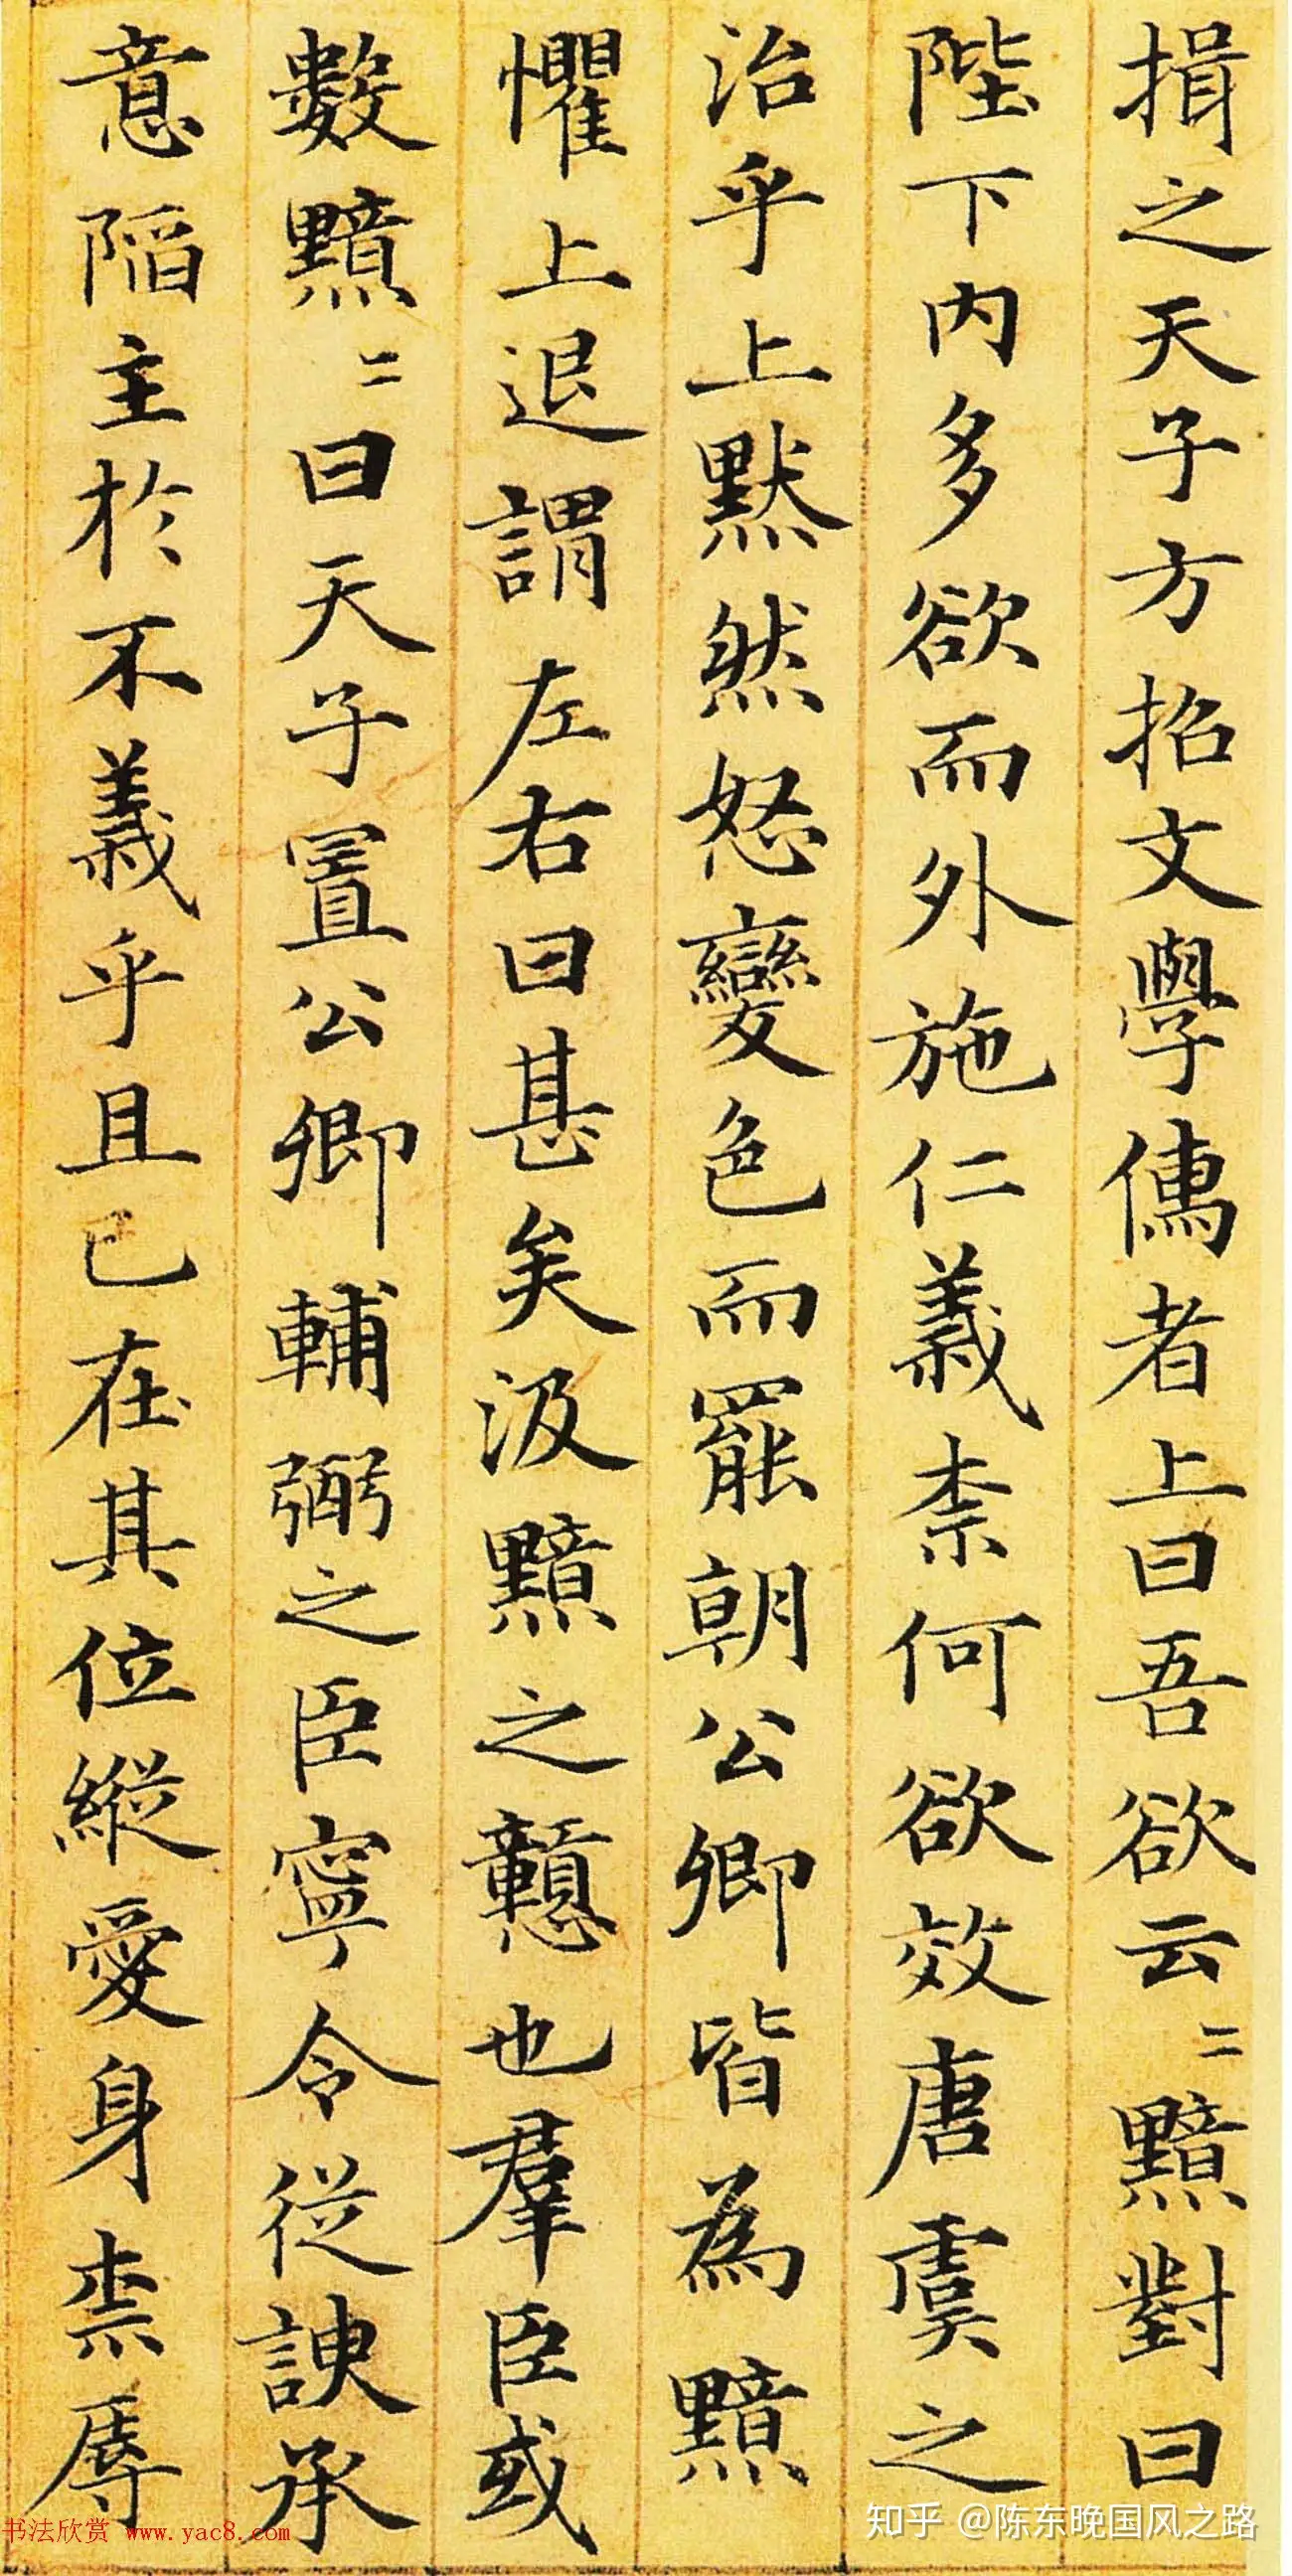 揖之天子方招文學儒者上曰吾欲云〻黯對曰
陛下內多欲而外施仁義柰何欲效唐虞之
治乎上默然怒變色而罷朝公卿皆為黯
懼上退謂左右曰甚矣汲黯之戇也羣臣或
數黯〻曰天子置公卿輔弼之臣寧令從諛承
意陷主於不義乎且已在其位縱愛身柰辱
知乎 @陈东晚国风之路
书法欣赏 www.yac8.com